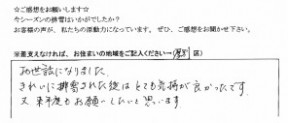 ☆ご感想をお願いします☆
今シーズンの排雪はいかがでしたか？
お客様の声が、私たちの原動力になっています。 ぜひ、ご感想をお聞かせ下さい。
※差支えなければ、お住まいの地域をご記入ください→( 区)
お世話になりました。
きれいに排雪された後はとても気持が良かったです。
又 来季もお願いしたいと思います